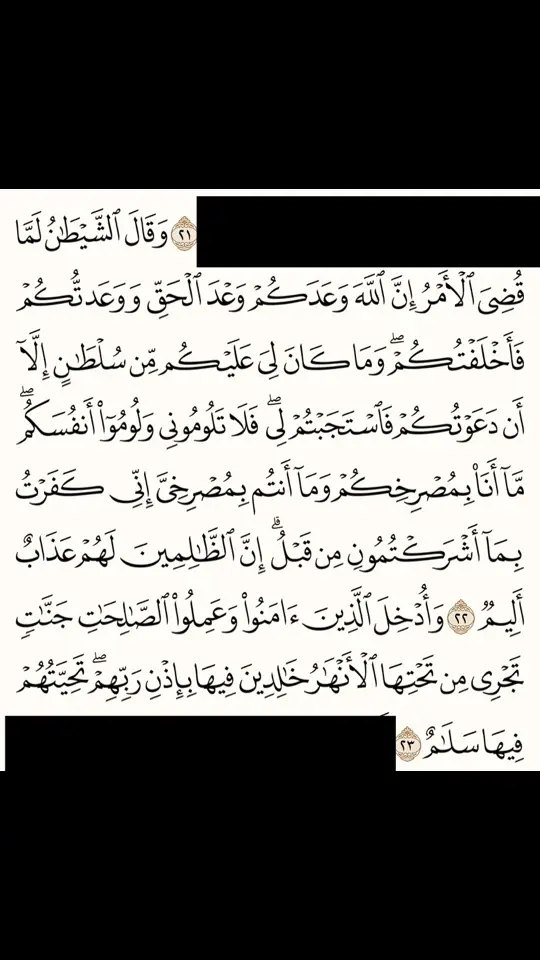 ٢١ وَقَالَ ٱلشَّيْطَٰنُ لَمَّا
قُضِيَ ٱلْأَمْرُ إِنَّ ٱللَّهَ وَعَدَكُمْ وَعْدَ ٱلْحَقِّ وَوَعَدتُّكُمْ
فَأَخْلَفْتُكُمْۖ وَمَا كَانَ لِيَ عَلَيْكُم مِّن سُلْطَٰنٍ إِلَّآ
أَن دَعَوْتُكُمْ فَٱسْتَجَبْتُمْ لِيۖ فَلَا تَلُومُونِي وَلُومُوٓا۟ أَنفُسَكُمۖ
مَّآ أَنَا۠ بِمُصْرِخِكُمْ وَمَآ أَنتُم بِمُصْرِخِيَّ إِنِّي كَفَرْتُ
بِمَآ أَشْرَكْتُمُونِ مِن قَبْلُۗ إِنَّ ٱلظَّٰلِمِينَ لَهُمْ عَذَابٌ
أَلِيمٌ ٢٢ وَأُدْخِلَ ٱلَّذِينَ ءَامَنُوا۟ وَعَمِلُوا۟ ٱلصَّٰلِحَٰتِ جَنَّٰتٍ
تَجْرِي مِن تَحْتِهَا ٱلْأَنْهَٰرُ خَٰلِدِينَ فِيهَا بِإِذْنِ رَبِّهِمْۖ تَحِيَّتُهُمْ
فِيهَا سَلَٰمٌ ٢٣